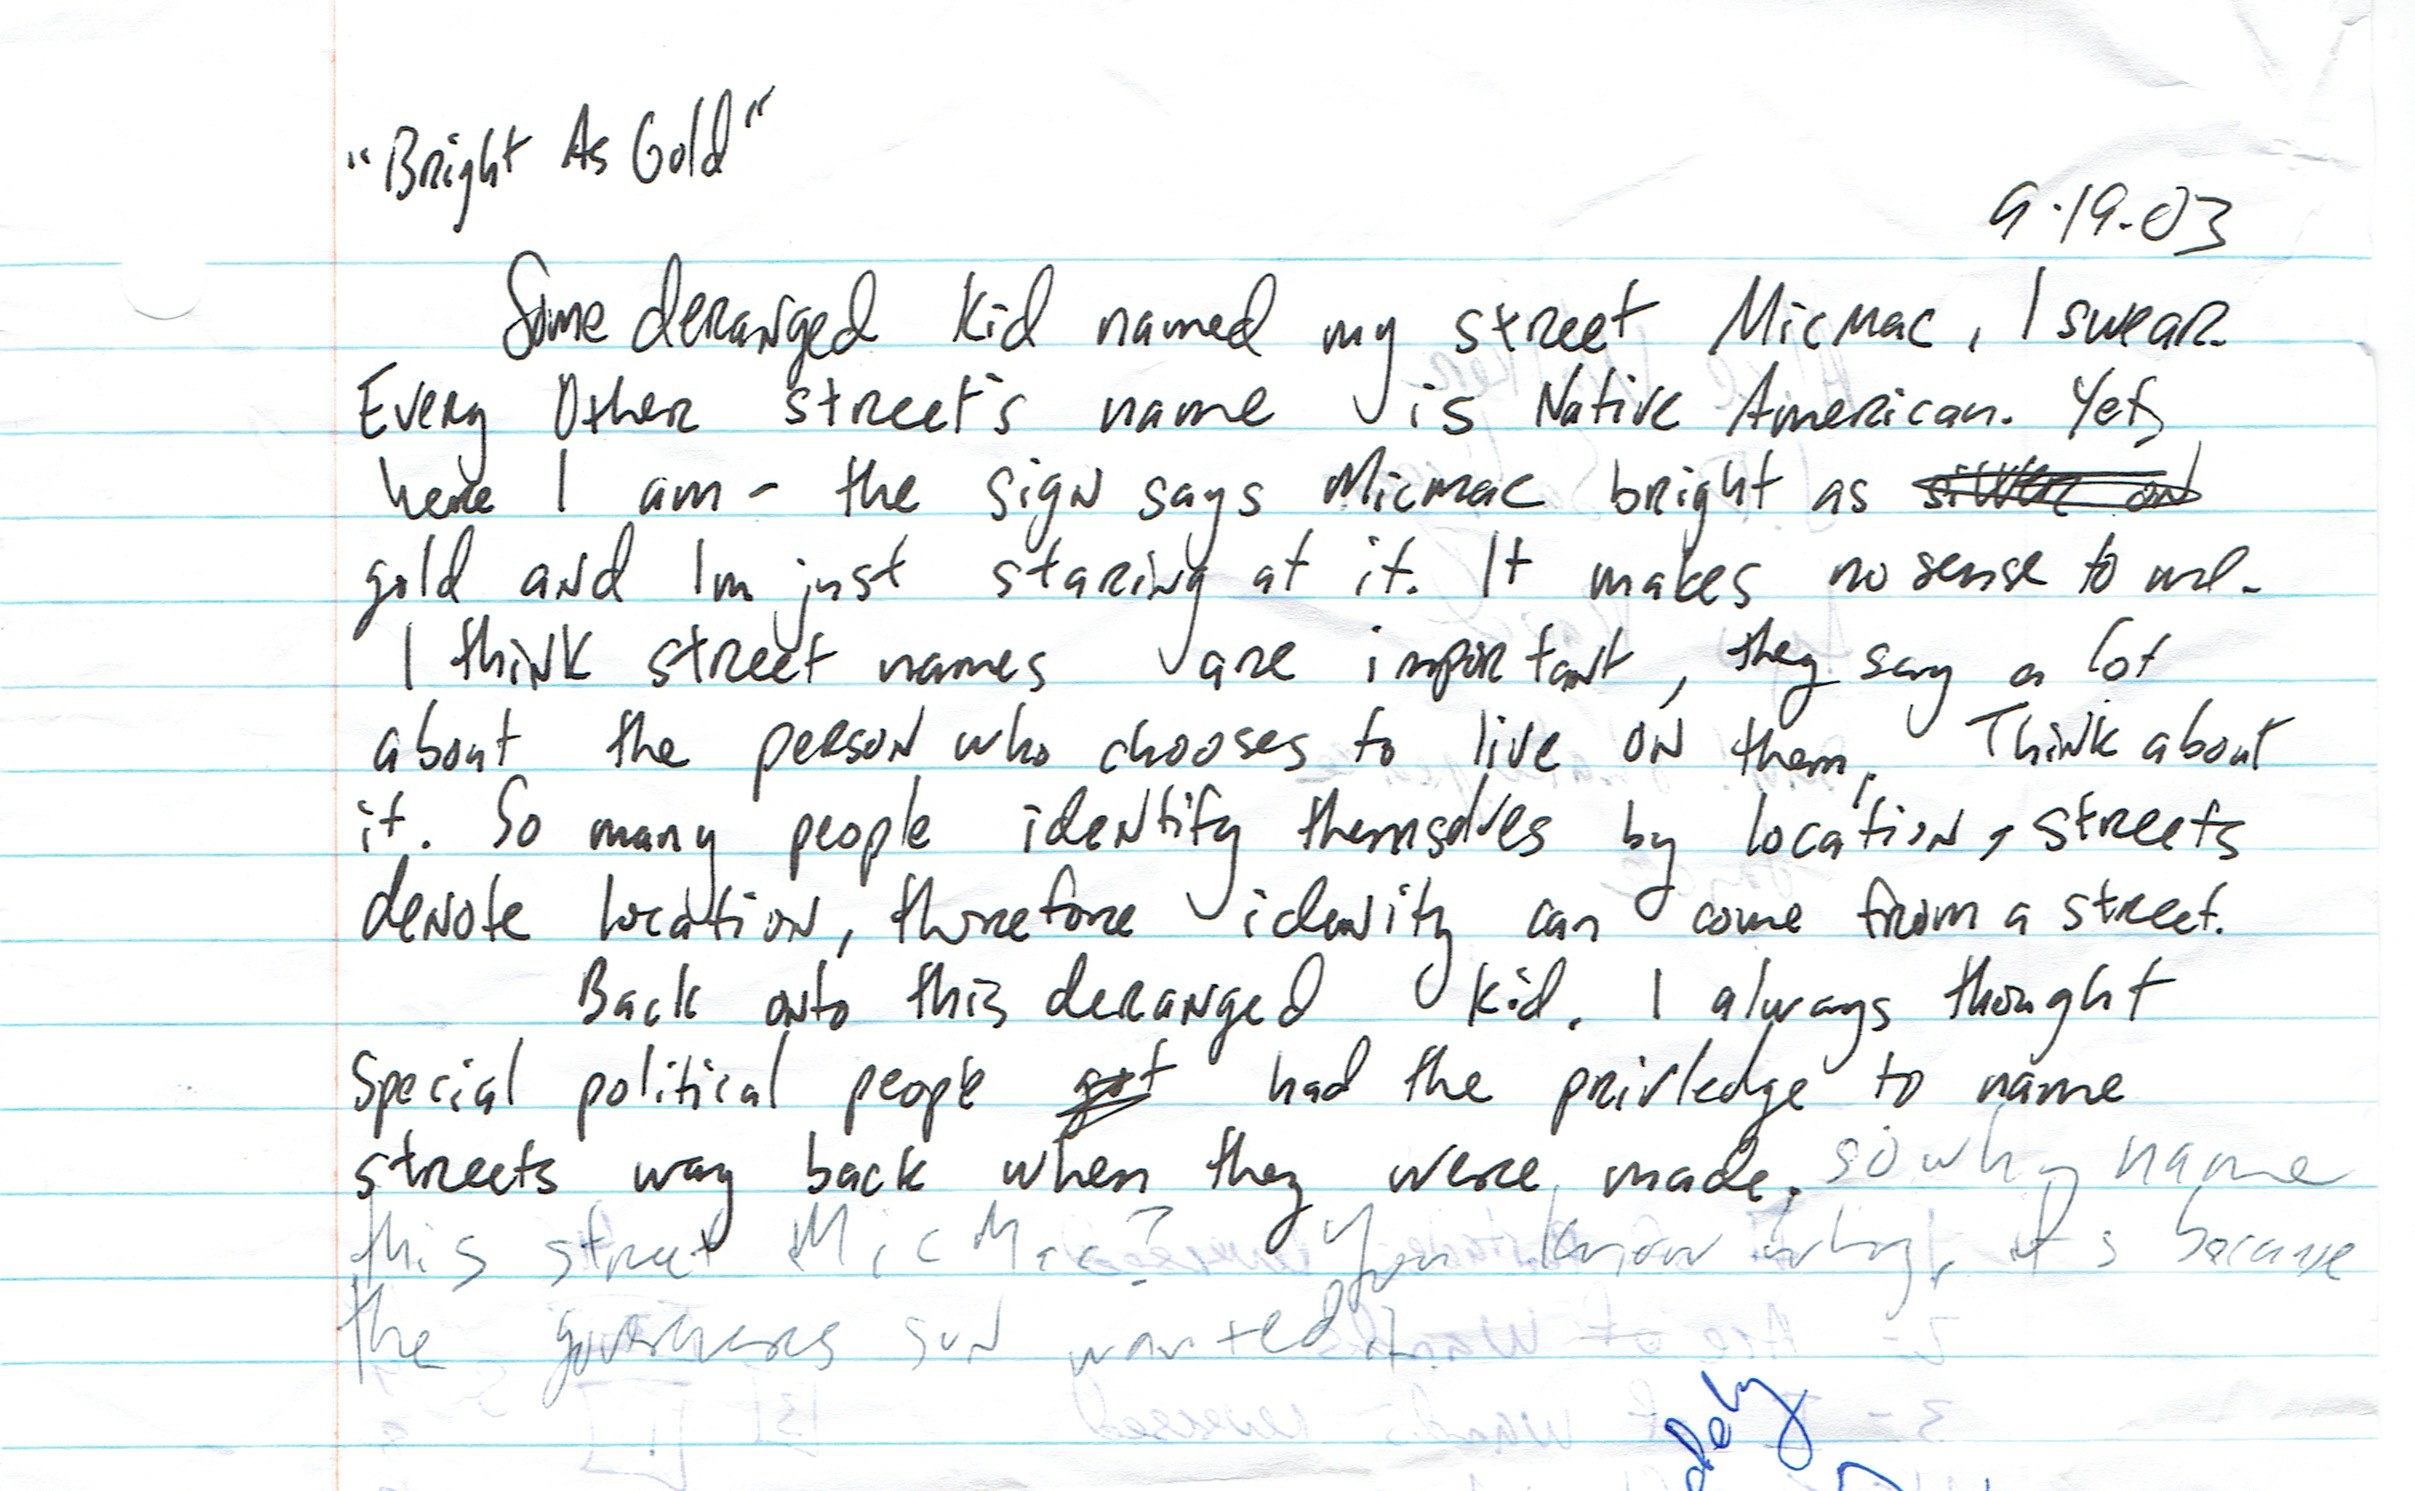 "Bright As Gold"
9.19.03
Some deranged kid named my street Micmac, I swear.
Every Other street's name is Native American. Yet,
here I am - the sign says Micmac bright as silver and
gold and Im just staring at it. It makes no sense to me.
I think street names are important, they say a lot
about the person who chooses to live on them, Think about
it. So many people identify themselves by location, streets
denote location, therefore idenity can come from a street.
Back onto this deranged kid. I always thought
special political people got had the privledge to name
streets way back when they were made. so why name
this street MicMac? You know why, it's because
the governers son wanted it